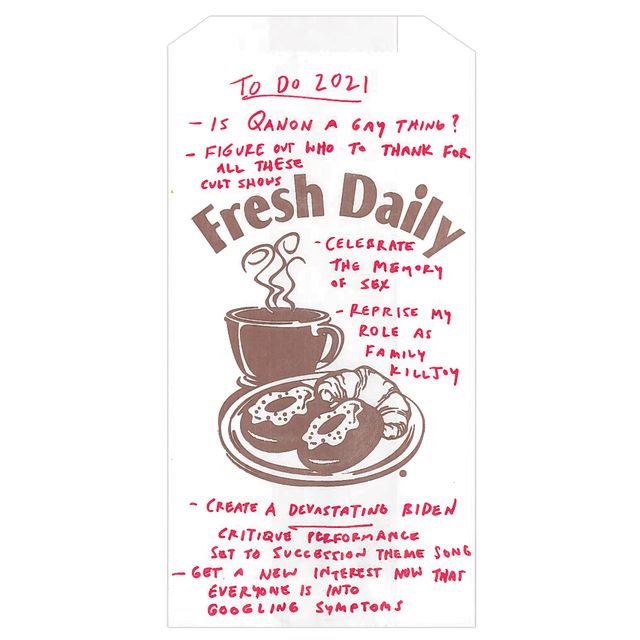 TO DO 2021
- IS QANON A GAY THING?
- FIGURE OUT WHO TO THANK FOR
ALL THESE
CULT SHOWS
Fresh Daily
- CELEBRATE
THE MEMORY
OF SEX
- REPRISE MY
ROLE AS
FAMILY
KILLJOY
- CREATE A DEVASTATING BIDEN
CRITIQUE PERFORMANCE
SET TO SUCCESSION THEME SONG
- GET A NEW INTEREST NOW THAT
EVERYONE IS INTO
GOOGLING SYMPTOMS